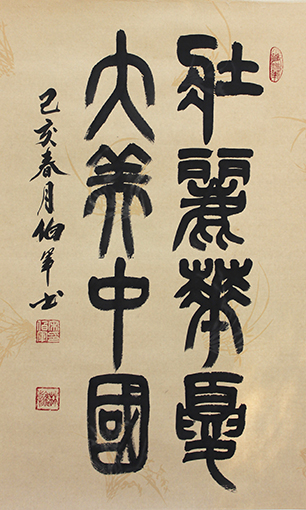 壯麗華夏
大美中國
己亥春月伯书